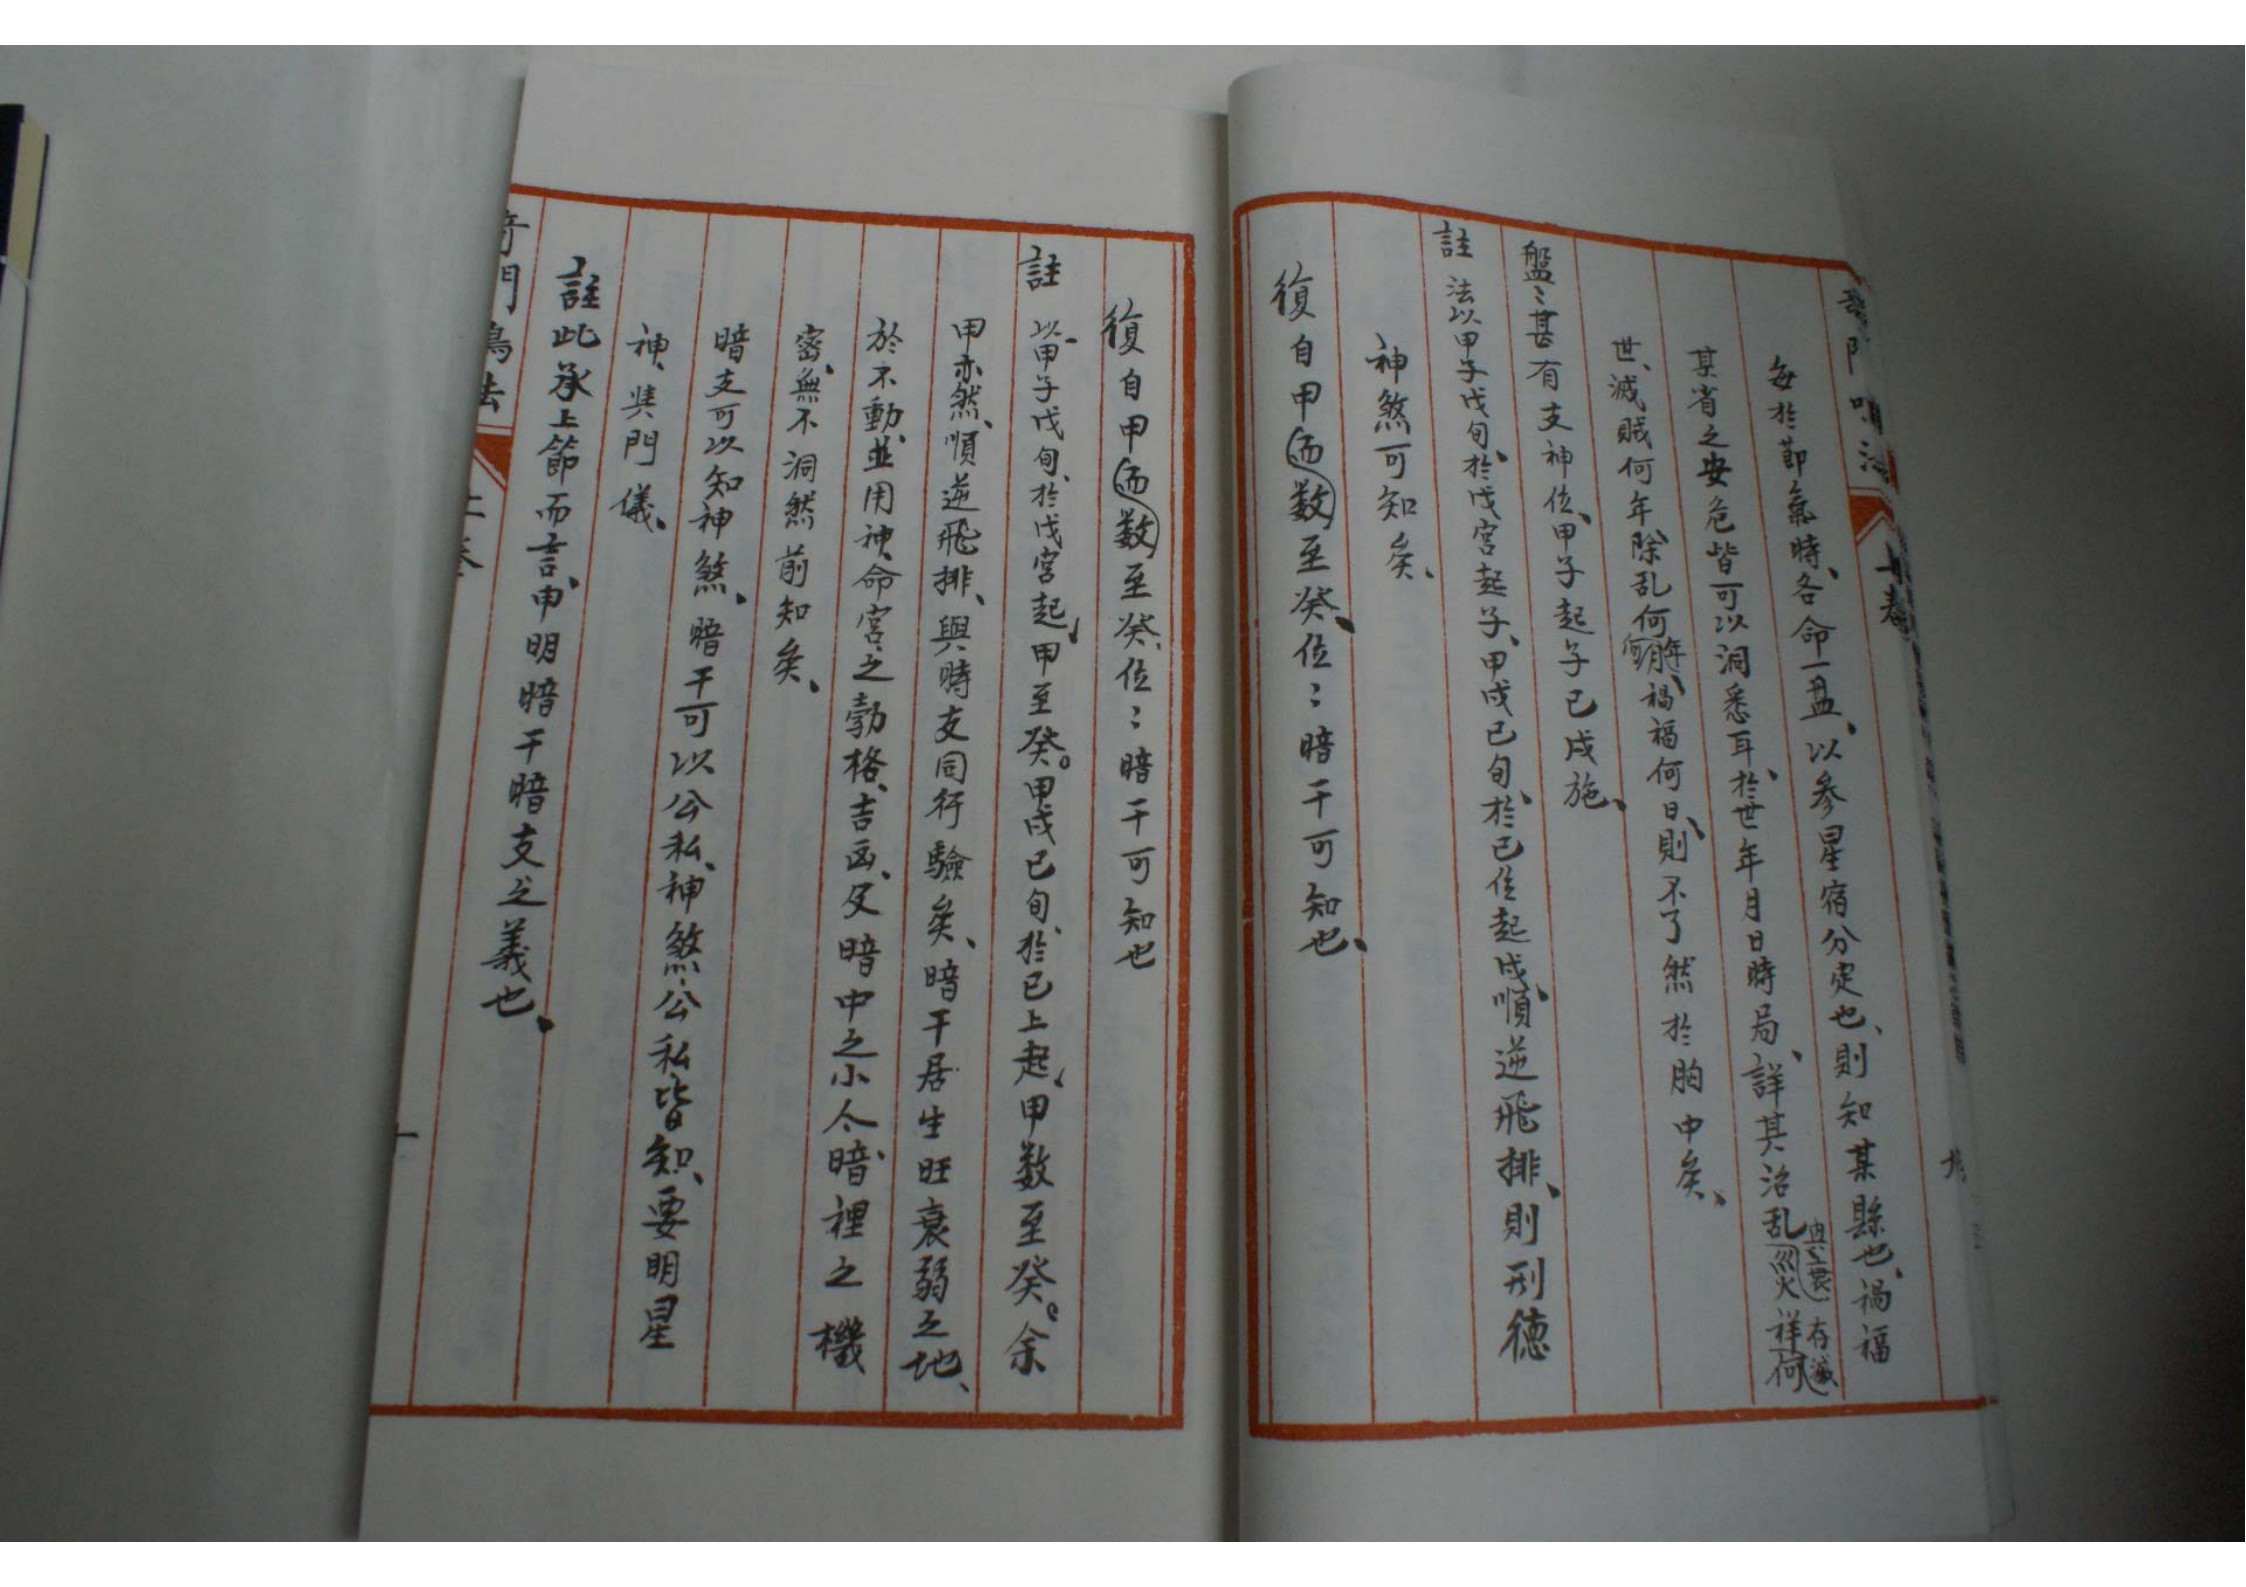 每於節氣時、各命一盤、以参星宿分定也、則知某縣也、禍福
某省之安危皆可以洞悉耳、於世年月日時局、詳其治乱災祥何
存滅
世、滅賊何年除乱何年何月、禍福何日、則不了然於胸中矣、
盤〻甚有支神位、甲子起子已戌施、
註 法以甲子戊旬、於戊宮起子、甲戌已旬、於已位起戌、順逆飛排、則刑德
神煞可知矣、
復自甲而数至癸、位〻暗干可知也、
復自甲而数至癸、位〻暗干可知也
註 以甲子戊旬、於戊宮起、甲至癸。甲戌已旬、於已上起、甲数至癸。余
甲亦然、順逆飛排、與時支同行驗矣、暗干居生旺衰弱之地、
於不動、並用神、命宮之勃格、吉凶、及暗中之小人、暗裡之機
密、無不洞然前知矣、
暗支可以知神煞、暗干可以公私、神煞、公私皆知、要明星
神、與門儀、
註此承上節而言、申明暗干暗支之義也、
奇門鳴法
上卷